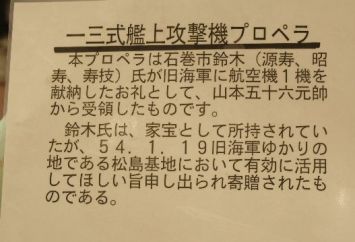 一三式艦上攻撃機プロペラ
本プロペラは石巻市鈴木（源寿、昭
寿、寿技）氏が旧海軍に航空機１機を
献納したお礼として、山本五十六元帥
から受領したものです。
鈴木氏は、家宝として所持されてい
たが、５４．１．１９旧海軍ゆかりの
地である松島基地において有効に活用
してほしい旨申し出られ寄贈されたも
のである。